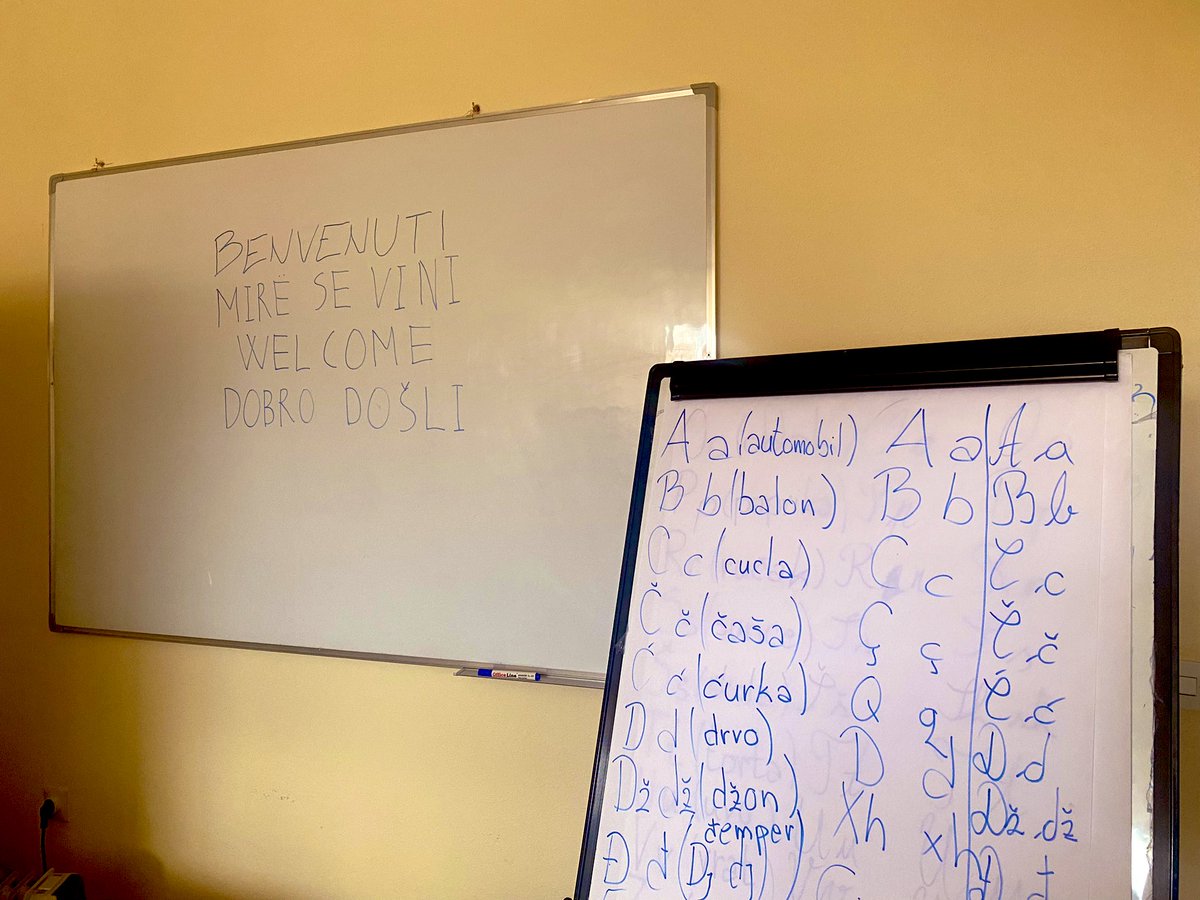 BENVENUTI
MIRË SE VINI
WELCOME
DOBRO DOŠLI
Office Line
A a (automobil) A a A a
B b (balon) B b B b
C c (cucla) C c C c
Č č (čaša) Ç ç Č č
Ć ć (ćurka) Q q Ć ć
D d (drvo) D d D d
Dž dž (džon) Xh xh Dž dž
đemper)
Đ đ (Dj dj) G Đ đ